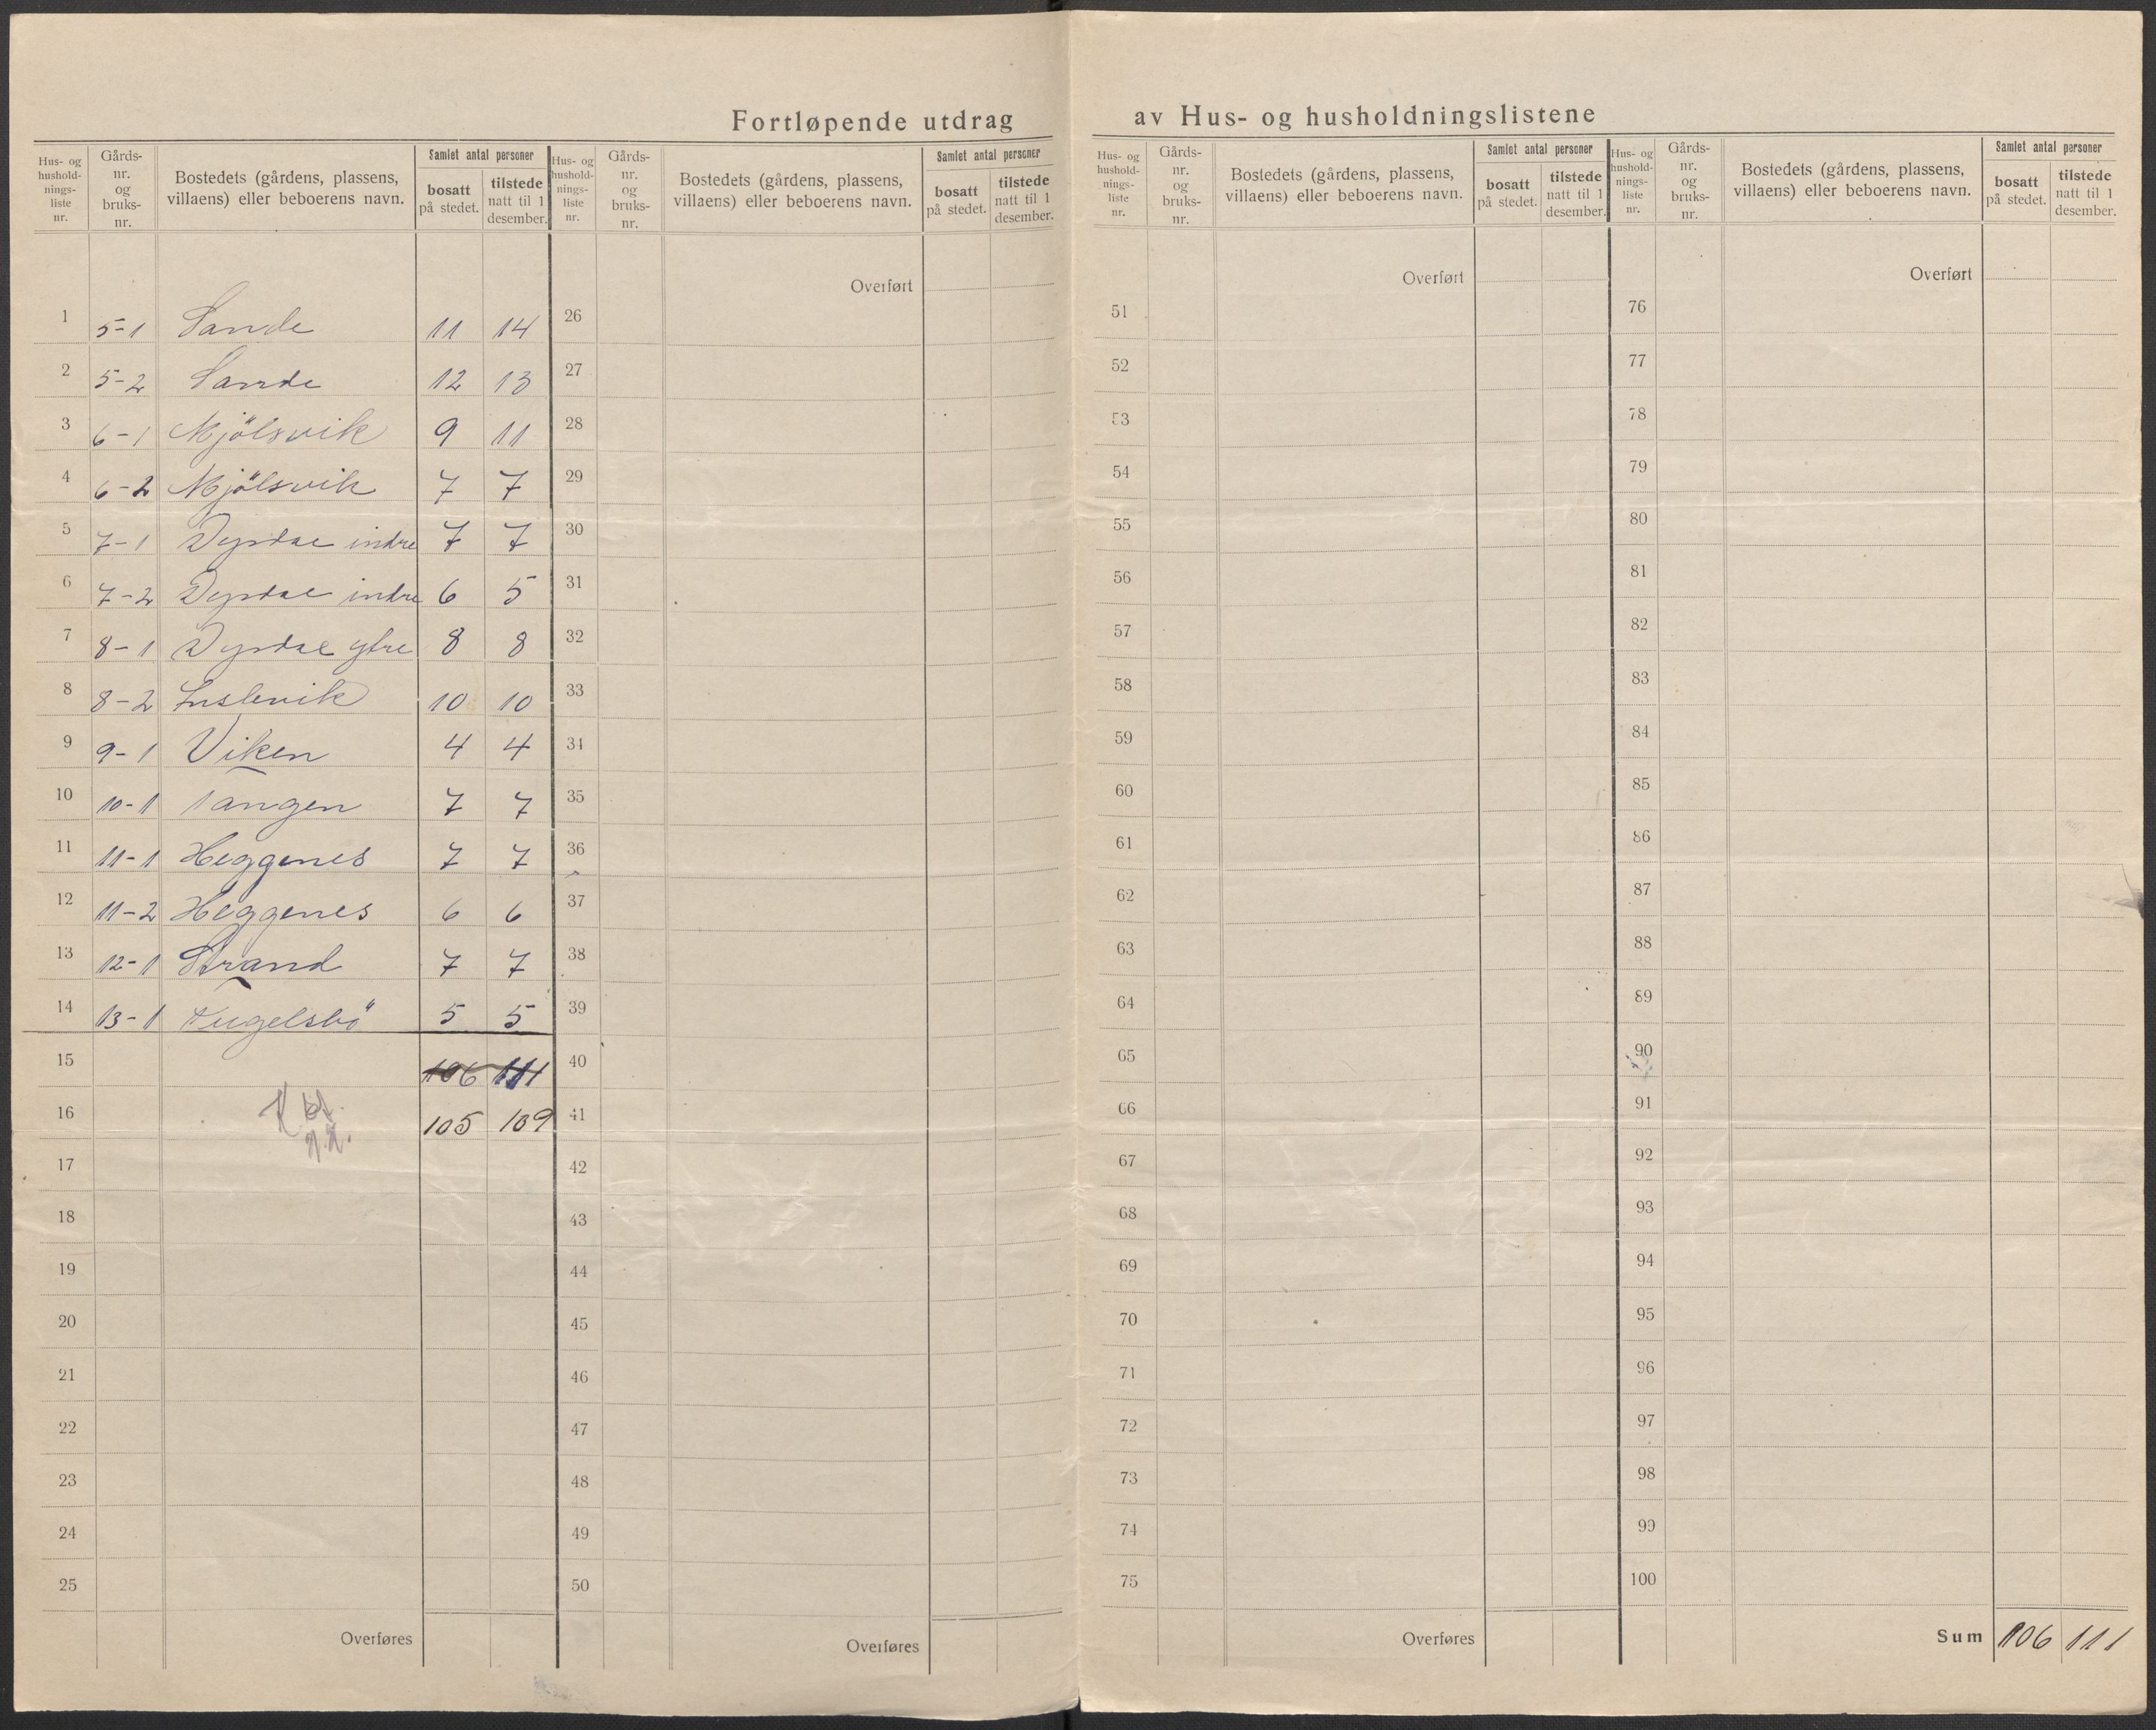 Fortløpende utdrag av Hus- og husholdningslistene
Hus- og hushold- nings- liste nr. Gårds- nr. og bruks- nr. Bostedets (gårdens, plassens, villaens) eller beboerens navn. Samlet antal personer bosatt på stedet. tilstede natt til 1 desember.
1 5-1 Sande 11 14
2 5-2 Sande 12 13
3 6-1 Mjölsvik 9 11
4 6-2 Mjölsvik 7 7
5 7-1 Dysdal indre 7 7
6 7-2 Dysdal indre 6 5
7 8-1 Dysdal ytre 8 8
8 8-2 10 10
9 9-1 Viken 4 4
10 10-1 Tangen 7 7
11 11-1 Heggenes 7 7
12 11-2 Heggenes 6 6
13 12-1 Strand 7 7
14 13-1 5 5
15 106 111
16 105 109
17
18
19
20
21
22
23
24
25
Overføres
Hus- og hushold- nings- liste nr. Gårds- nr. og bruks- nr. Bostedets (gårdens, plassens, villaens) eller beboerens navn. Samlet antal personer bosatt på stedet. tilstede natt til 1 desember.
Overført
26
27
28
29
30
31
32
33
34
35
36
37
38
39
40
41
42
43
44
45
46
47
48
49
50
Overføres
Hus- og hushold- nings- liste nr. Gårds- nr. og bruks- nr. Bostedets (gårdens, plassens, villaens) eller beboerens navn. Samlet antal personer bosatt på stedet. tilstede natt til 1 desember.
Overført
51
52
53
54
55
56
57
58
59
60
61
62
63
64
65
66
67
68
69
70
71
72
73
74
75
Overføres
Hus- og hushold- nings- liste nr. Gårds- nr. og bruks- nr. Bostedets (gårdens, plassens, villaens) eller beboerens navn. Samlet antal personer bosatt på stedet. tilstede natt til 1 desember.
Overført
76
77
78
79
80
81
82
83
84
85
86
87
88
89
90
91
92
93
94
95
96
97
98
99
100
Sum 106 111